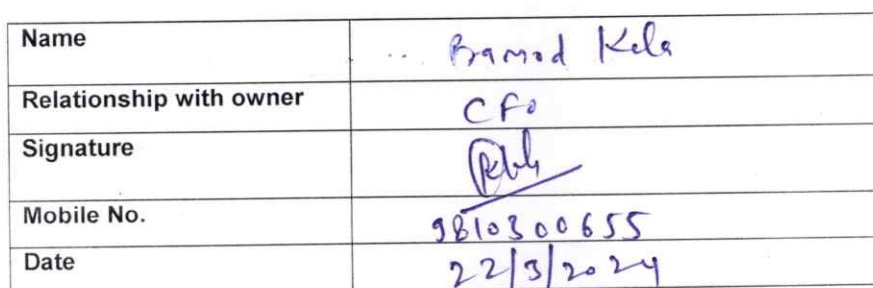 Name Pramod Kela
Relationship with owner CFO
Signature
Mobile No. 9810300655
Date 22/3/2024